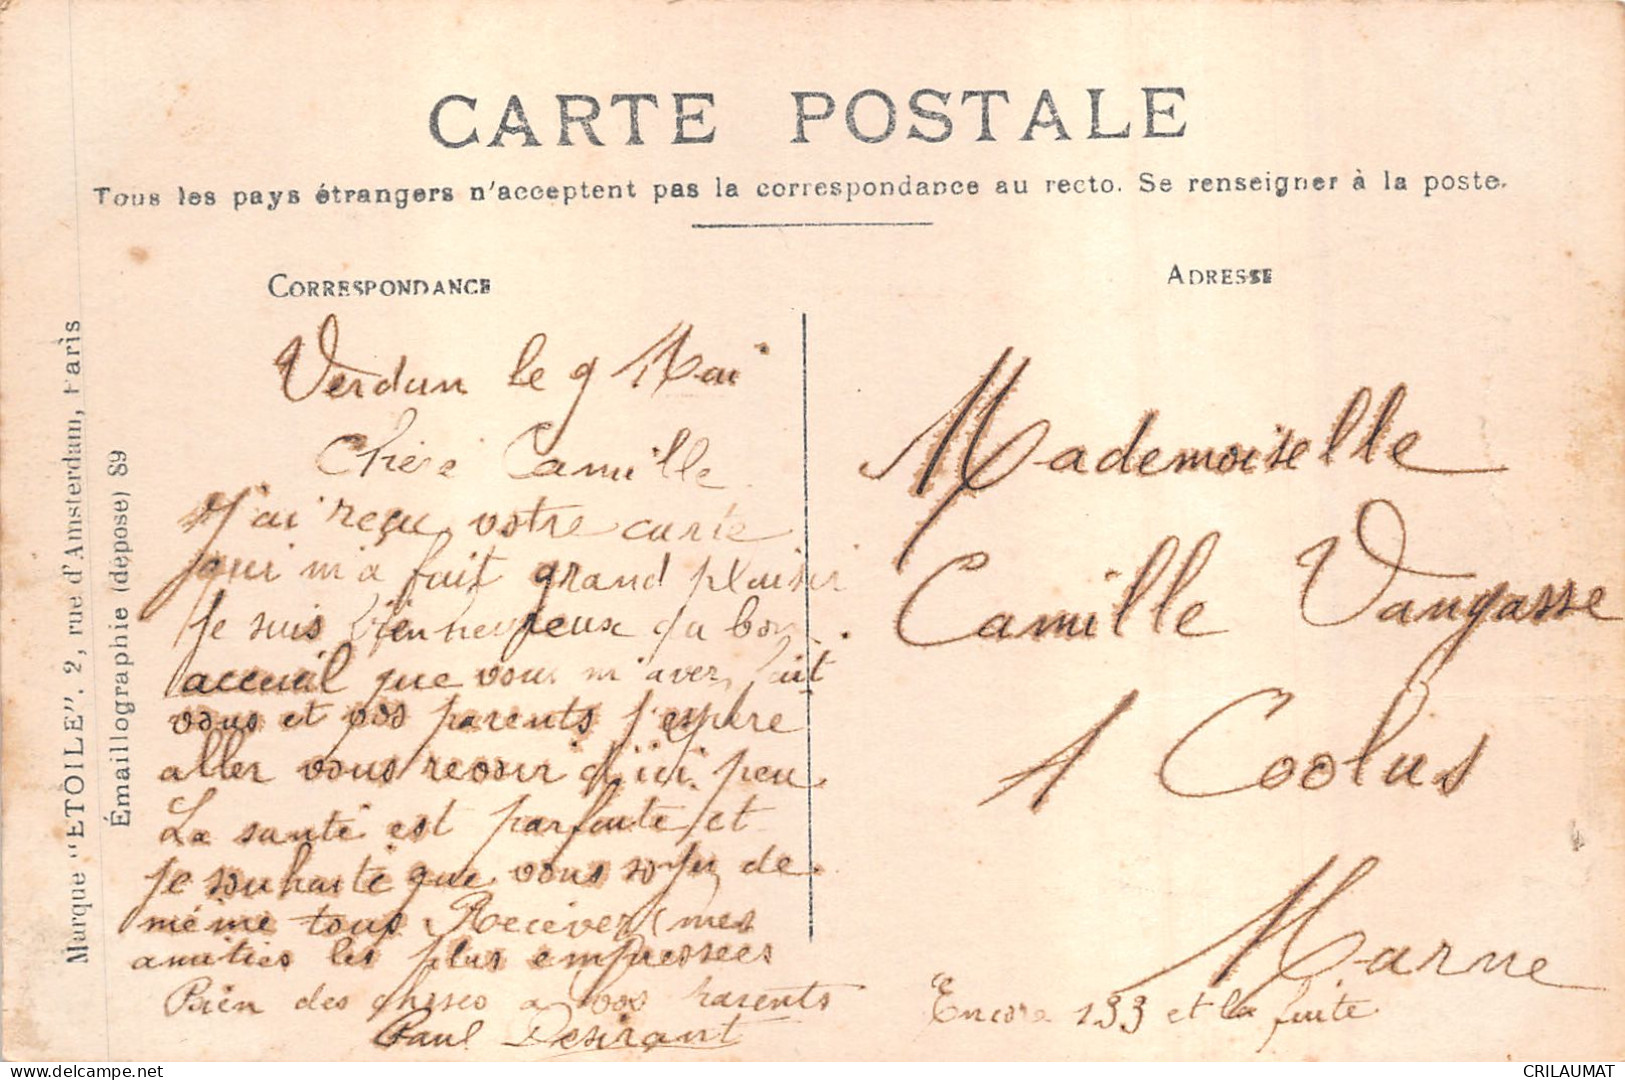 CARTE POSTALE
Tous les pays étrangers n'acceptent pas la correspondance au recto. Se renseigner à la poste.
CORRESPONDANCE
ADRESSE
Marque "ETOILE". 2, rue d'Amsterdam, Paris
Émaillographie (déposé) 89
Verdun le 9 Mai
Chère Camille
J'ai reçu votre carte
qui m'a fait grand plaisir
je suis bien heureux du bon
accueil que vous m'avez fait
vous et vos parents j'espère
aller vous revoir d'ici peu
La santé est parfaite et
je souhaite que vous soyez de
même tous Recevez mes
amitiés les plus empressées
Bien des choses a vos parents
Paul Desirant
Mademoiselle
Camille Vangasse
A Coolus
Marne
Encore 133 et la fuite
CRILAUMAT
www.delcampe.net